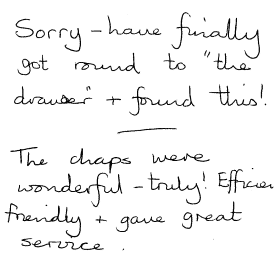 Sorry – have finally
got round to "the
drawer" + found this!
The chaps were
wonderful – truly! Efficien
friendly + gave great
service.